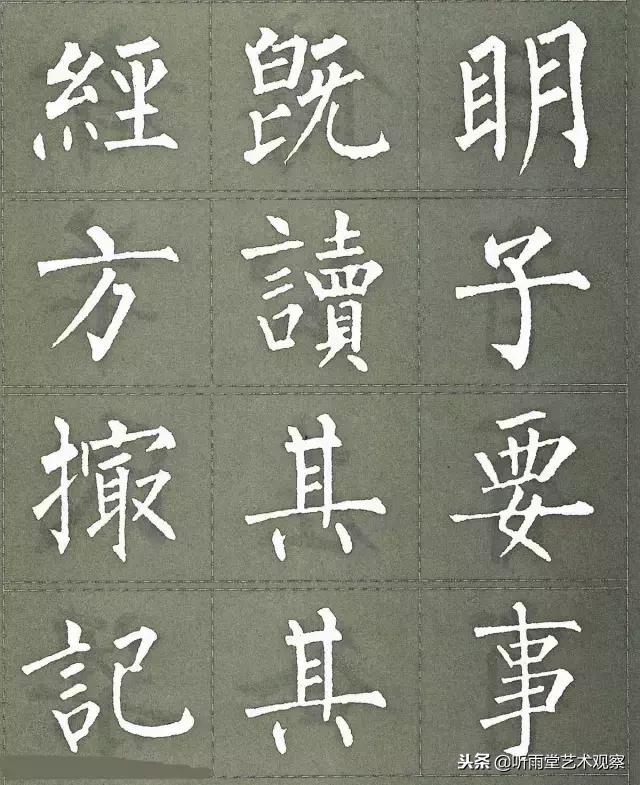 經既明
方讀子
撮其要
記其事
头条 @听雨堂艺术观察